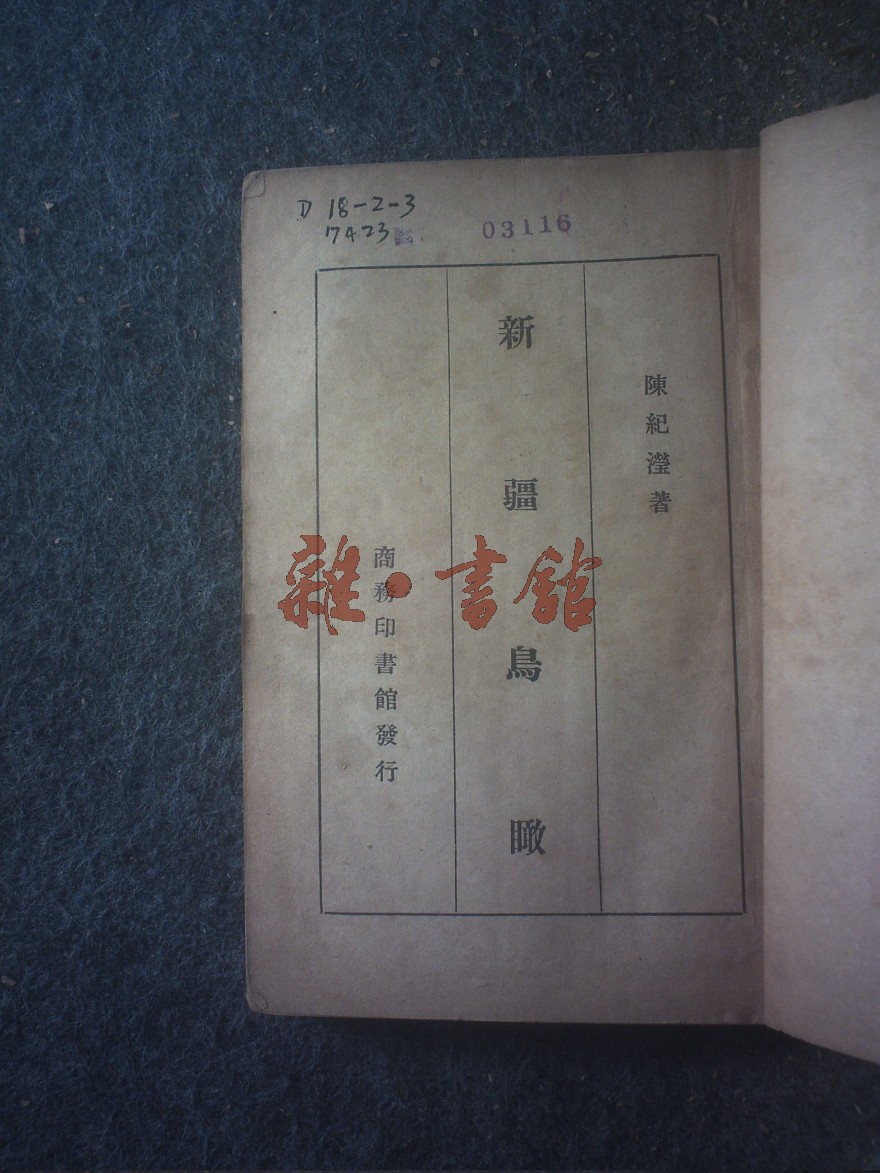 D 18-2-3
7423
03116
陳紀瀅著
新疆鳥瞰
商務印書館發行
雜·書館